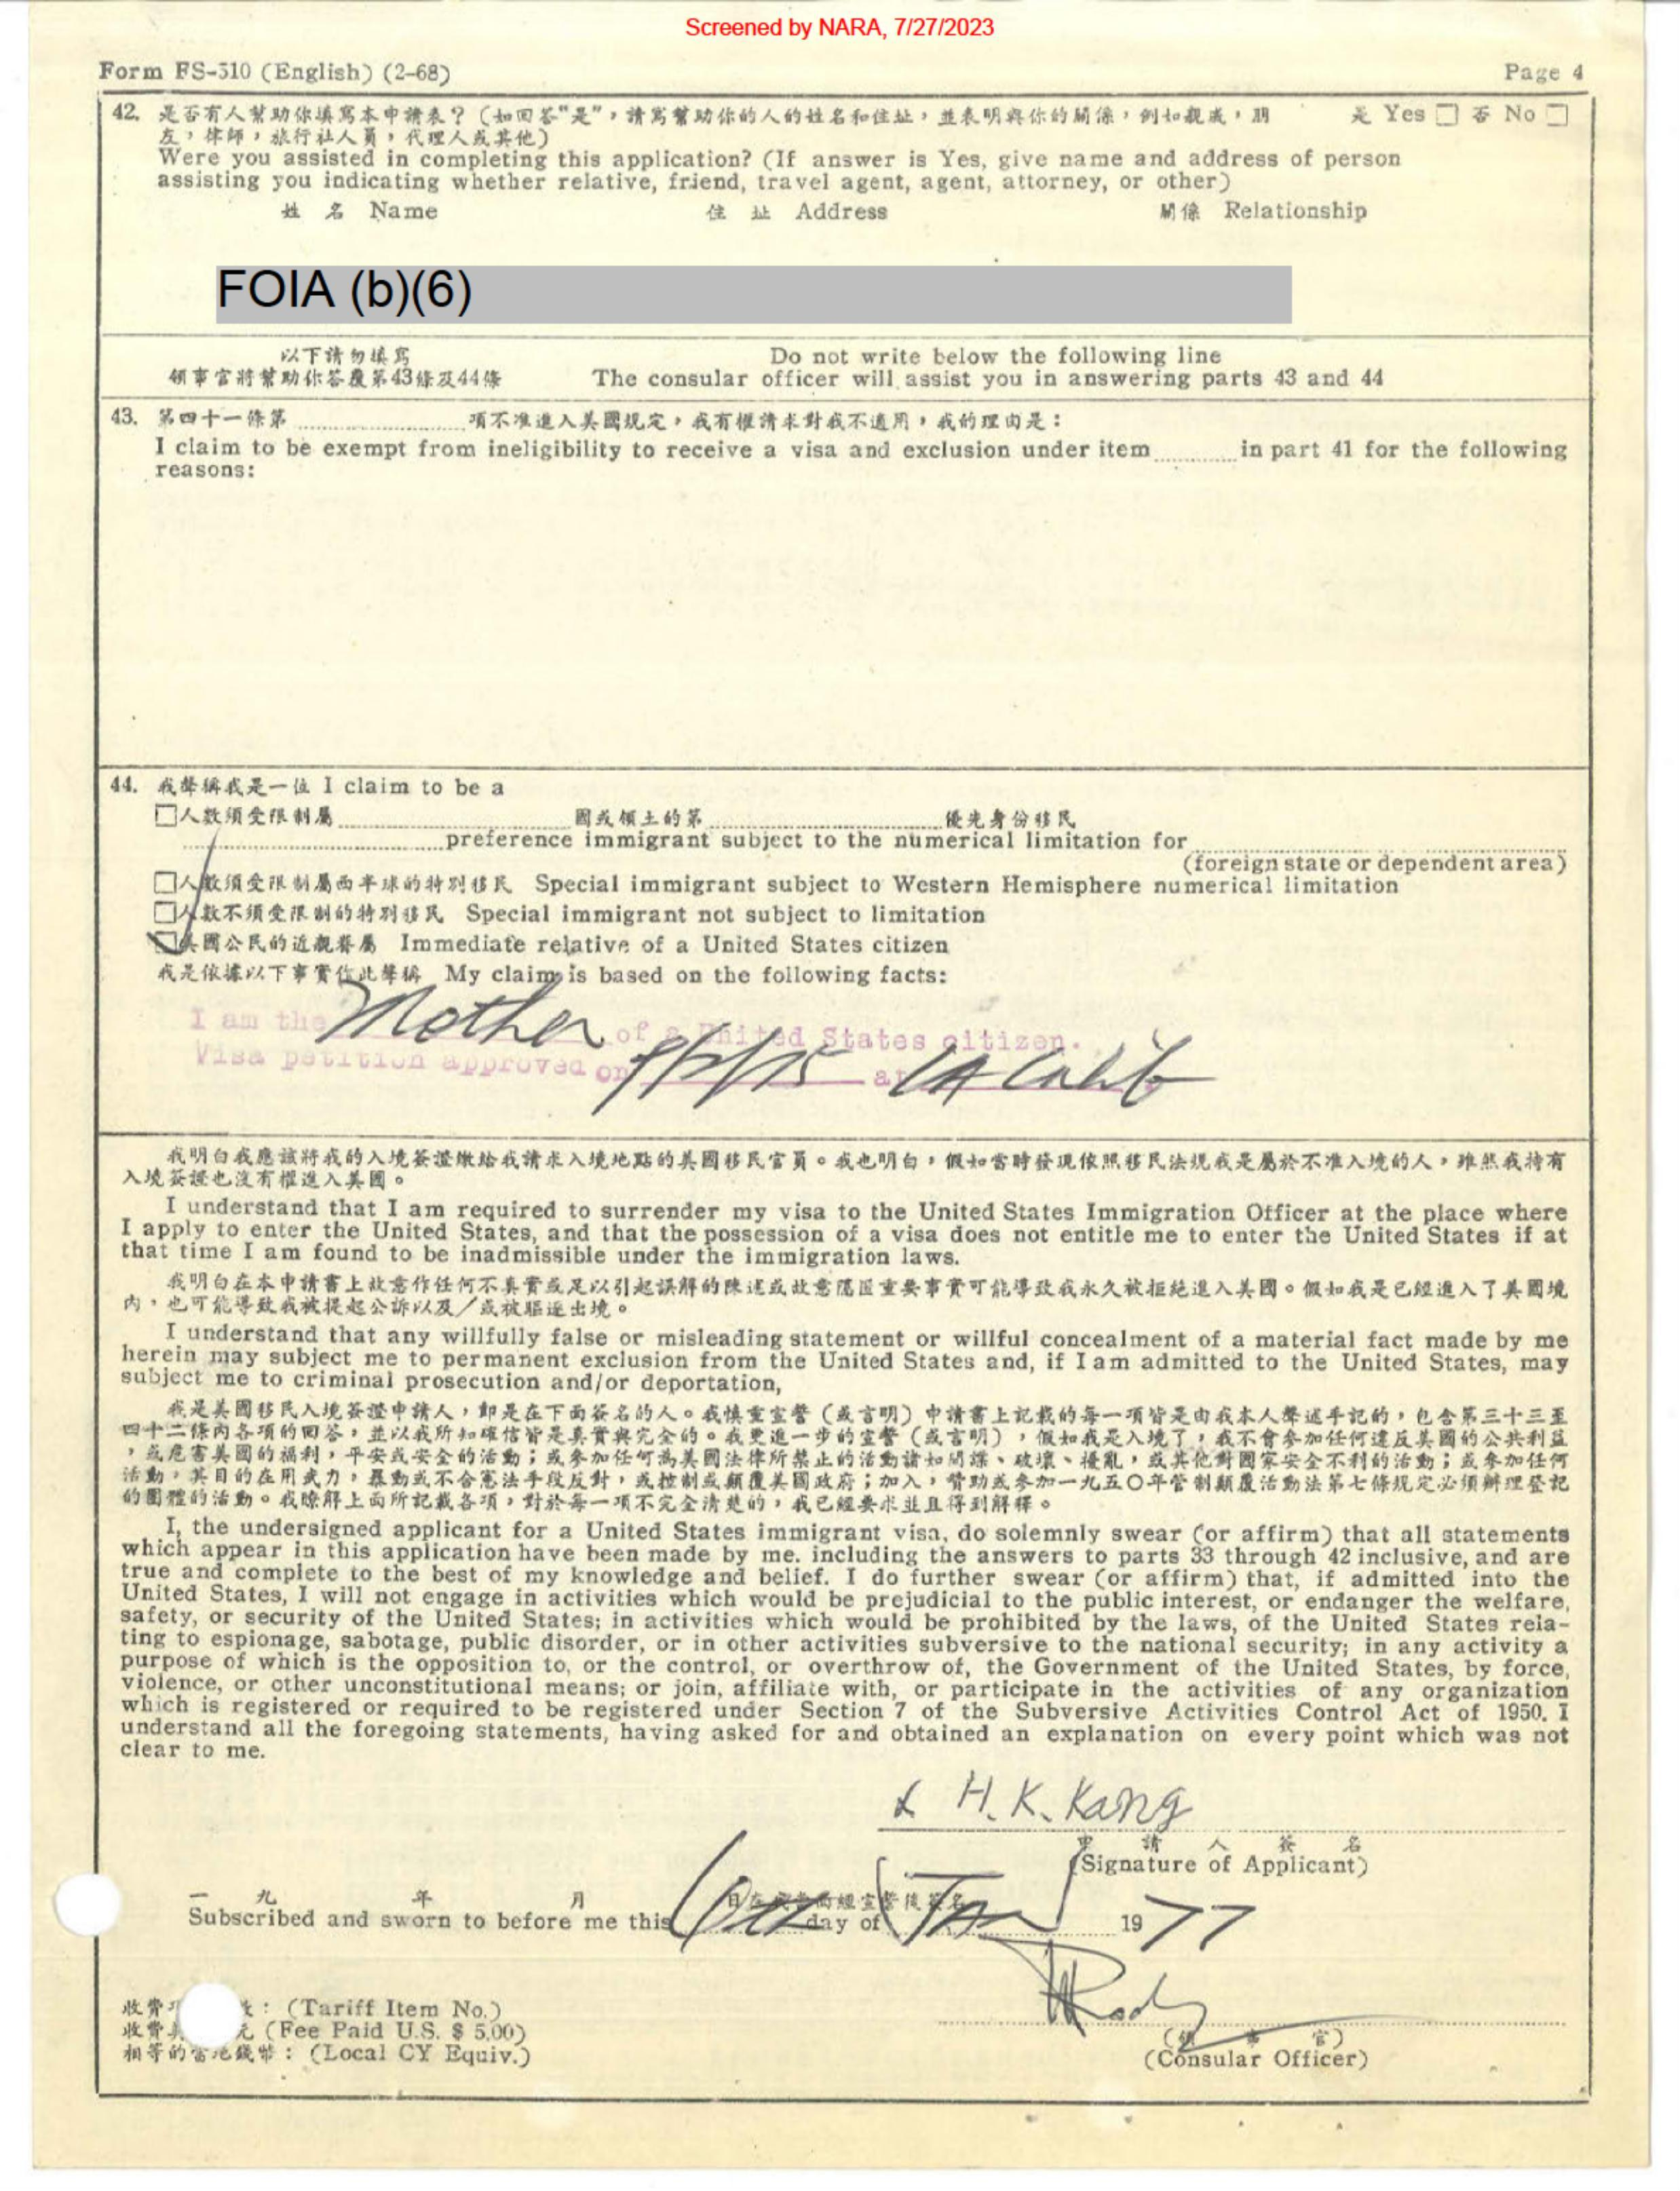 Screened by NARA, 7/27/2023
Form FS-510 (English) (2-68)
Page 4
42. 是否有人幫助你填寫本申請表？(如回答"是"，請寫幫助你的人的姓名和住址，並表明與你的關係，例如親戚，朋 是 Yes □ 否 No □
友，律師，旅行社人員，代理人或其他)
Were you assisted in completing this application? (If answer is Yes, give name and address of person
assisting you indicating whether relative, friend, travel agent, agent, attorney, or other)
姓 名 Name 住 址 Address 關係 Relationship
FOIA (b)(6)
以下請勿填寫 Do not write below the following line
領事官將幫助你答覆第43條及44條 The consular officer will assist you in answering parts 43 and 44
43. 第四十一條第 項不准進入美國規定，我有權請求對我不適用，我的理由是：
I claim to be exempt from ineligibility to receive a visa and exclusion under item in part 41 for the following
reasons:
44. 我聲稱我是一位 I claim to be a
□人數須受限制屬 國或領土的第 優先身份移民
preference immigrant subject to the numerical limitation for
(foreign state or dependent area)
□人數須受限制屬西半球的特別移民 Special immigrant subject to Western Hemisphere numerical limitation
□人數不須受限制的特別移民 Special immigrant not subject to limitation
□美國公民的近親眷屬 Immediate relative of a United States citizen
我是依據以下事實作此聲稱 My claim is based on the following facts:
I am the Mother of a United States citizen.
Visa petition approved on at LA Calif
我明白我應該將我的入境簽證繳給我請求入境地點的美國移民官員。我也明白，假如當時發現依照移民法規我是屬於不准入境的人，雖然我持有
入境簽證也沒有權進入美國。
I understand that I am required to surrender my visa to the United States Immigration Officer at the place where
I apply to enter the United States, and that the possession of a visa does not entitle me to enter the United States if at
that time I am found to be inadmissible under the immigration laws.
我明白在本申請書上故意作任何不真實或足以引起誤解的陳述或故意隱匿重要事實可能導致我永久被拒絕進入美國。假如我是已經進入了美國境
內，也可能導致我被提起公訴以及／或被驅逐出境。
I understand that any willfully false or misleading statement or willful concealment of a material fact made by me
herein may subject me to permanent exclusion from the United States and, if I am admitted to the United States, may
subject me to criminal prosecution and/or deportation,
我是美國移民入境簽證申請人，即是在下面簽名的人。我慎重宣誓（或言明）申請書上記載的每一項皆是由我本人聲述手記的，包含第三十三至
四十二條內各項的回答，並以我所知確信皆是真實與完全的。我更進一步的宣誓（或言明），假如我是入境了，我不會參加任何違反美國的公共利益
，或危害美國的福利，平安或安全的活動；或參加任何為美國法律所禁止的活動諸如間諜、破壞、擾亂，或其他對國家安全不利的活動；或參加任何
活動，其目的在用武力，暴動或不合憲法手段反對，或控制或顛覆美國政府；加入，贊助或參加一九五〇年管制顛覆活動法第七條規定必須辦理登記
的團體的活動。我瞭解上面所記載各項，對於每一項不完全清楚的，我已經要求並且得到解釋。
I, the undersigned applicant for a United States immigrant visa, do solemnly swear (or affirm) that all statements
which appear in this application have been made by me. including the answers to parts 33 through 42 inclusive, and are
true and complete to the best of my knowledge and belief. I do further swear (or affirm) that, if admitted into the
United States, I will not engage in activities which would be prejudicial to the public interest, or endanger the welfare,
safety, or security of the United States; in activities which would be prohibited by the laws, of the United States rela-
ting to espionage, sabotage, public disorder, or in other activities subversive to the national security; in any activity a
purpose of which is the opposition to, or the control, or overthrow of, the Government of the United States, by force,
violence, or other unconstitutional means; or join, affiliate with, or participate in the activities of any organization
which is registered or required to be registered under Section 7 of the Subversive Activities Control Act of 1950. I
understand all the foregoing statements, having asked for and obtained an explanation on every point which was not
clear to me.
x H.K. Kang
申 請 人 簽 名
(Signature of Applicant)
一 九 年 月
Subscribed and sworn to before me this day of Jan 1977
收費 : (Tariff Item No.)
收費 元 (Fee Paid U.S. $ 5.00)
相等的當地錢幣 : (Local CY Equiv.)
(領 事 官)
(Consular Officer)